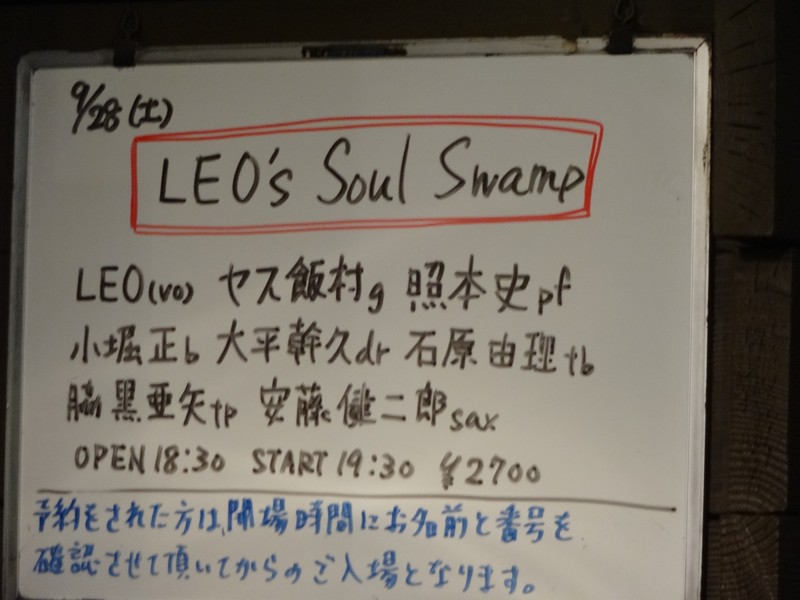 9/28(土)
LEO's Soul Swamp
LEO(vo) ヤス飯村g 照本史pf
小堀正b 大平幹久dr 石原由理tb
脇黒亜矢tp 安藤健二郎sax
OPEN 18:30 START 19:30 ¥2700
予約をされた方は、開場時間にお名前と番号を
確認させて頂いてからのご入場となります。